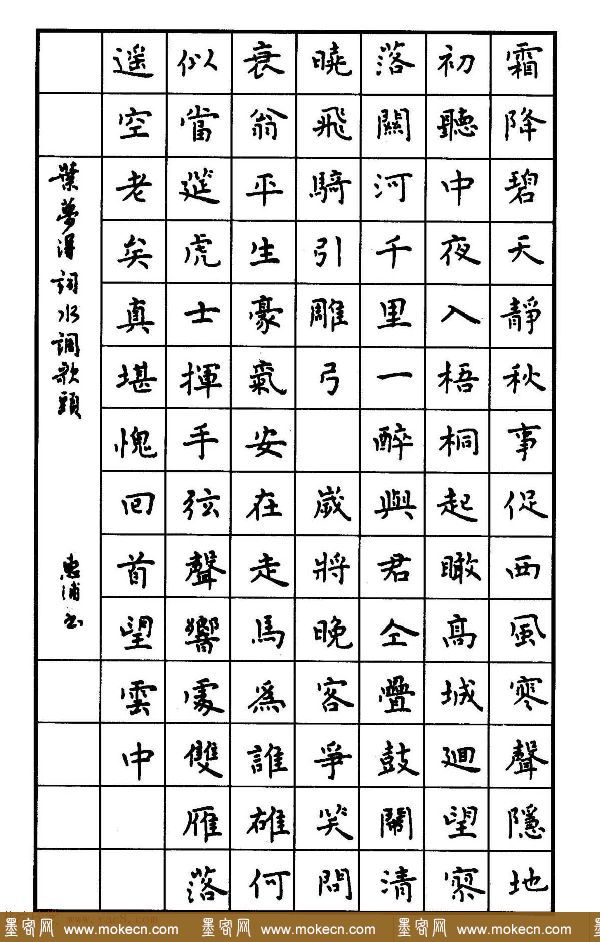 霜降碧天靜秋事促西風寒聲隱地
初聽中夜入梧桐起瞰高城廻望寥
落關河千里一醉與君仝疊鼓鬧清
曉飛騎引雕弓 歲將晚客爭笑問
衰翁平生豪氣安在走馬爲誰雄何
似當筵虎士揮手弦聲響處雙雁落
遥空老矣真堪愧回首望雲中
葉夢得詞水調歌頭 惠浦书
墨客网 www.mokecn.com 墨客网 www.mokecn.com 墨客网 www.mokecn.com